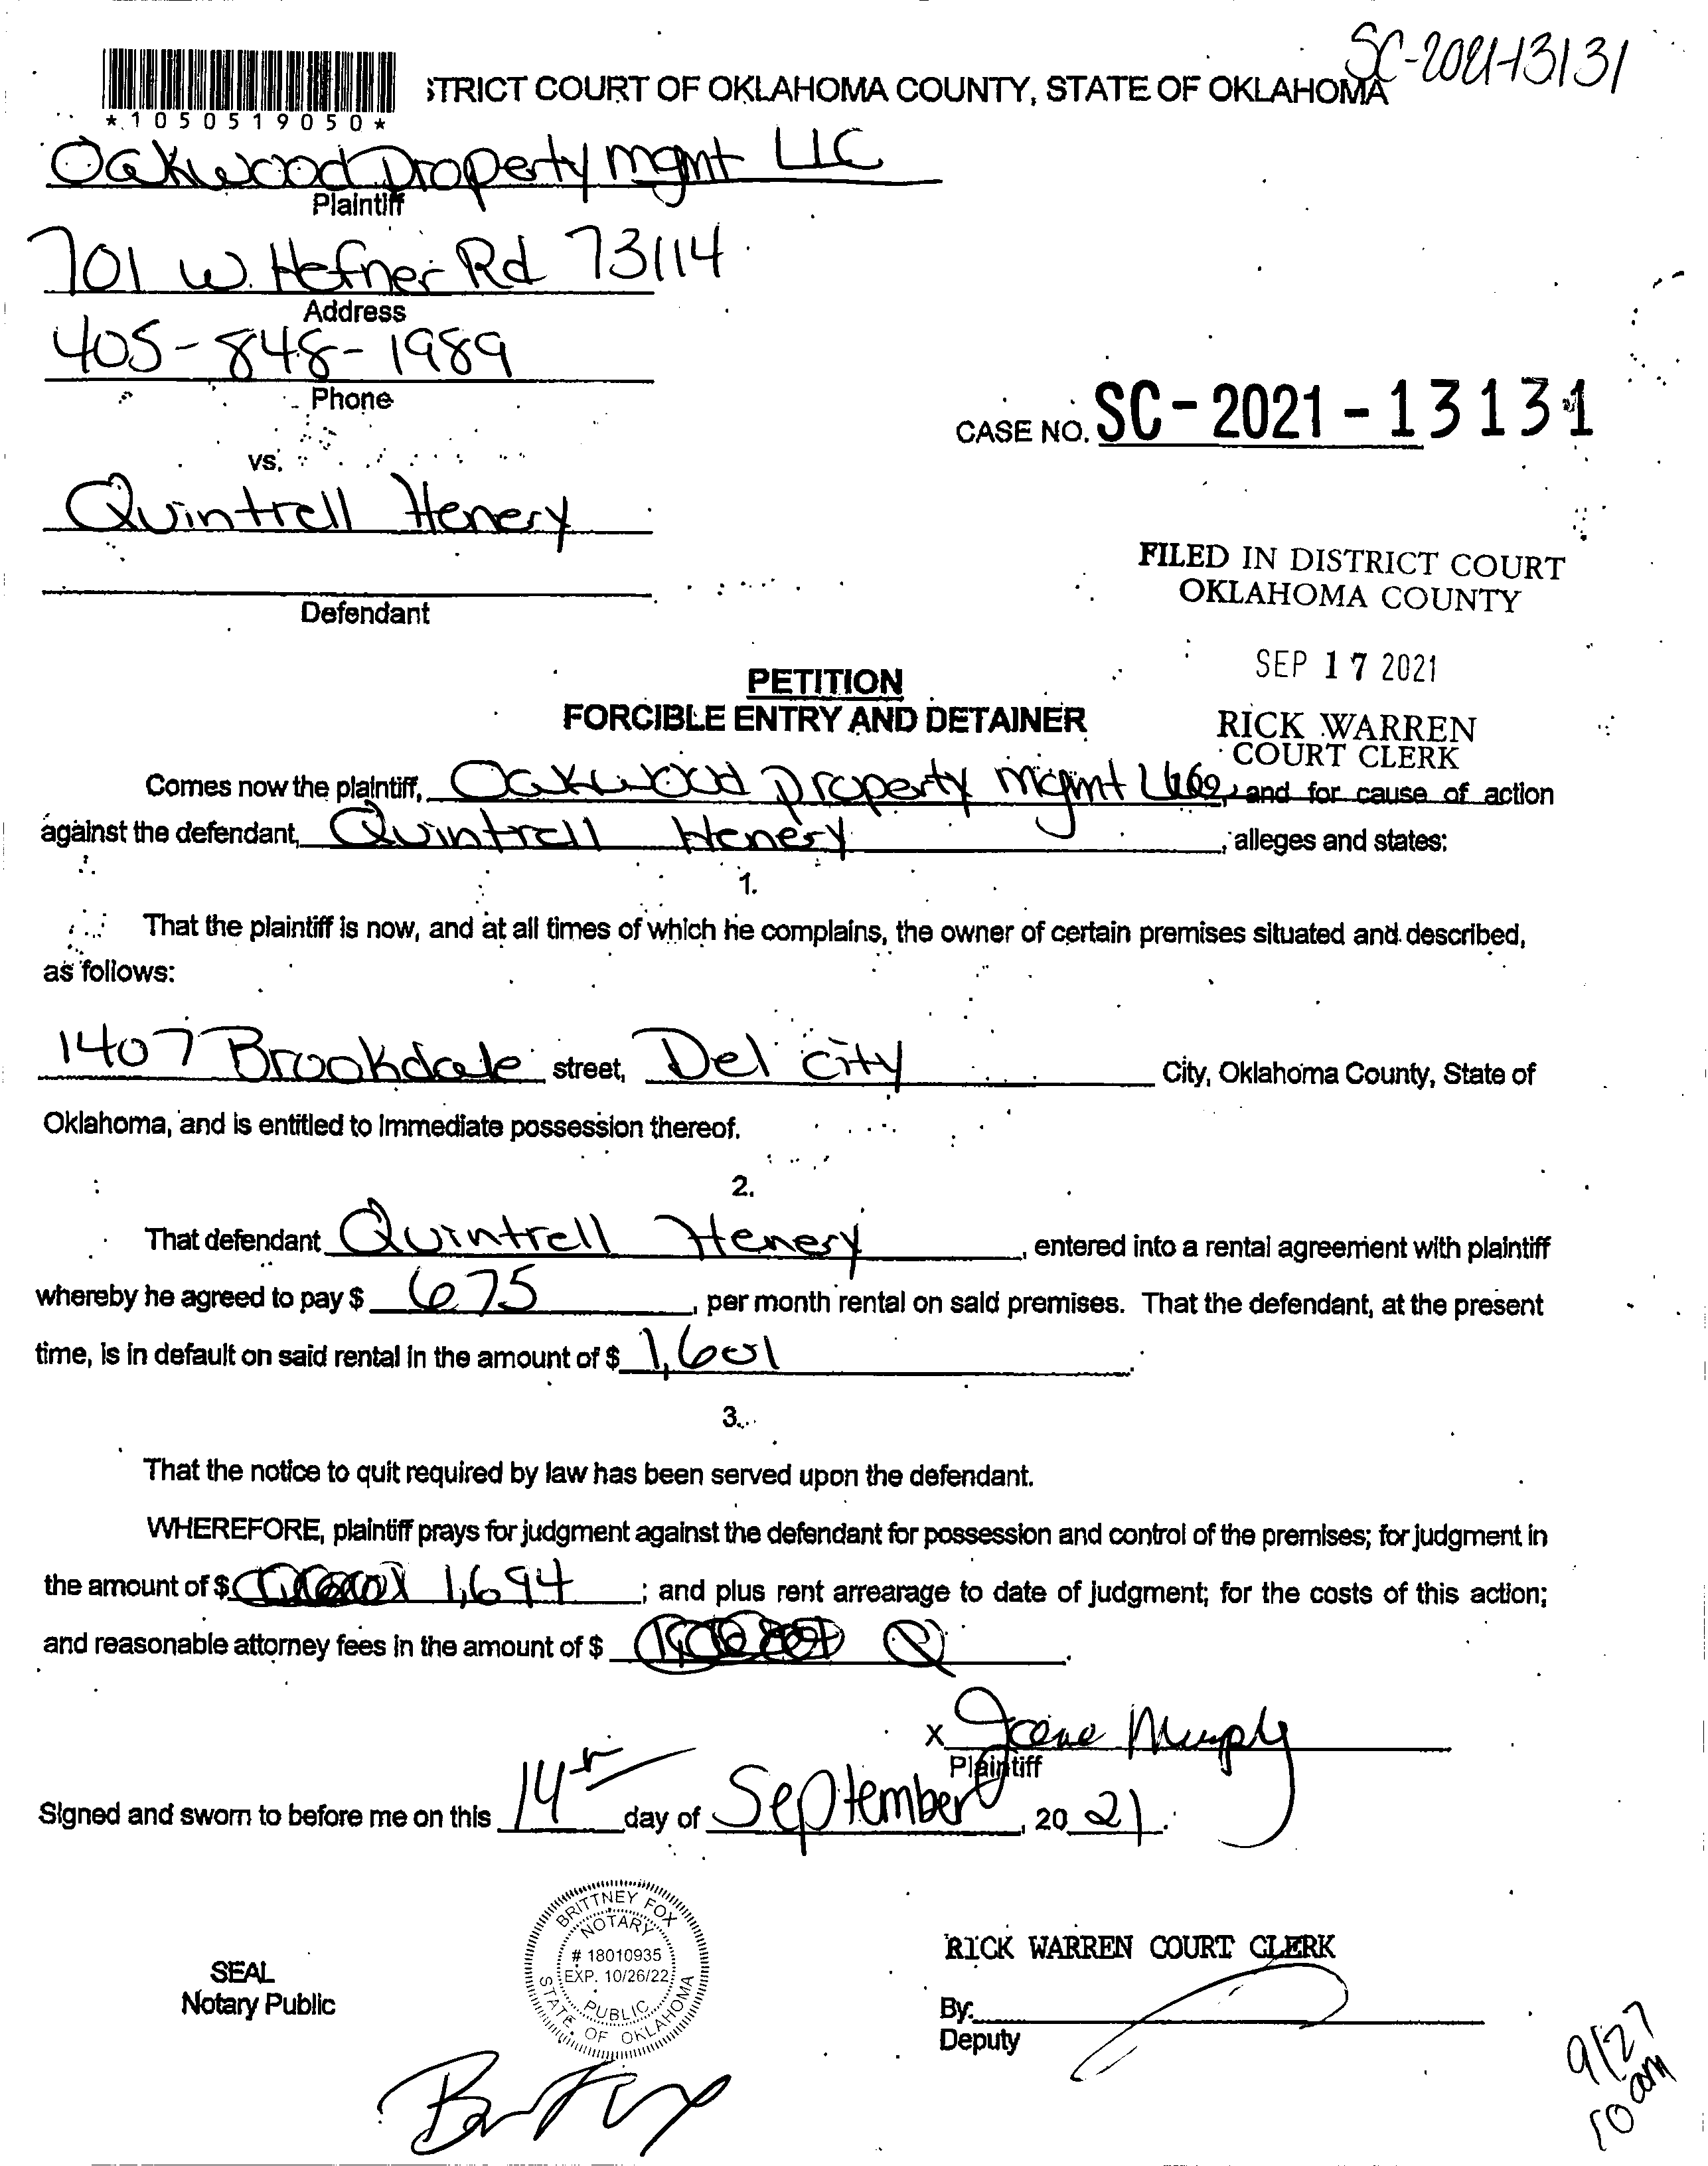 SC-2021-13131
STRICT COURT OF OKLAHOMA COUNTY, STATE OF OKLAHOMA
*1050519050*
Oakwood Property mgmt LLC
Plaintiff
701 W. Hefner Rd 73114
Address
405-848-1989
Phone
CASE NO. SC-2021-13131
vs.
Quintrell Henery
Defendant
FILED IN DISTRICT COURT
OKLAHOMA COUNTY
SEP 17 2021
RICK WARREN
COURT CLERK
PETITION
FORCIBLE ENTRY AND DETAINER
Comes now the plaintiff, Oakwood Property mgmt, and for cause of action
against the defendant, Quintrell Henery, alleges and states:
1.
That the plaintiff is now, and at all times of which he complains, the owner of certain premises situated and described,
as follows:
1407 Brookdale street, Del city City, Oklahoma County, State of
Oklahoma, and is entitled to immediate possession thereof.
2.
That defendant Quintrell Henery, entered into a rental agreement with plaintiff
whereby he agreed to pay $ 675, per month rental on said premises. That the defendant, at the present
time, is in default on said rental in the amount of $ 1,601.
3.
That the notice to quit required by law has been served upon the defendant.
WHEREFORE, plaintiff prays for judgment against the defendant for possession and control of the premises; for judgment in
the amount of $ 1,694; and plus rent arrearage to date of judgment; for the costs of this action;
and reasonable attorney fees in the amount of $
X
Plaintiff
Signed and sworn to before me on this 14th day of September, 2021.
BRITTNEY FOX
NOTARY
# 18010935
EXP. 10/26/22
PUBLIC
STATE OF OKLAHOMA
SEAL
Notary Public
RICK WARREN COURT CLERK
By:
Deputy
9/27
10am